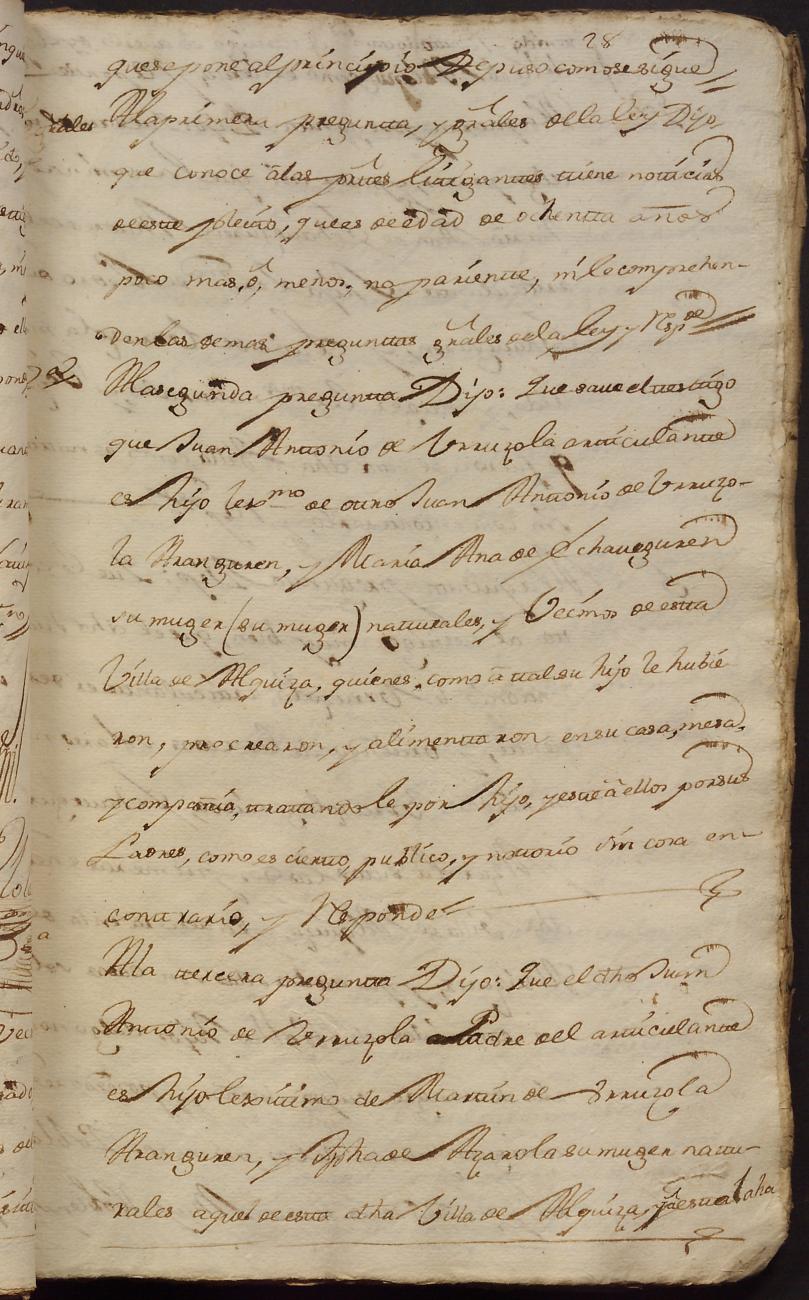 28
que se pone al principio Depuso como se sigue
Grales
A la primera pregunta, y grales de la ley Dijo
que conoce â las ptes Litigantes tiene noticias
de este pleito, que es de edad de ochentta años
poco mas, ô, menos, no pariente, ni le comprehen-
den las demas preguntas grales de la Ley y Respde
2ª
A la segunda pregunta Dijo: Que save el testigo
que Juan Antonio de Urruzola articulante
es hijo lexmo de otro Juan Antonio de Urruzo-
la Aranguren, y Maria Ana de Echaveguren
su muger (su muger) naturales, y Vecinos de esta
Villa de Alquiza, quienes, como â tal su hijo le hubie
ron, procrearon, y alimentaron en su casa, mesa,
y compañia, tratandole por hijo, y este â ellos por sus
Padres, como es cierto, publico, y notorio sin cosa en-
contrario, y Responde
3ª
A la tercera pregunta Dijo: Que el dho Juan
Antonio de Urruzola Padre del articulante
es hijo lexitimo de Martin de Urruzola
Aranguren, y de Azarola su muger natu-
rales aquel de esta dha Villa de Alquiza, y esta la ha